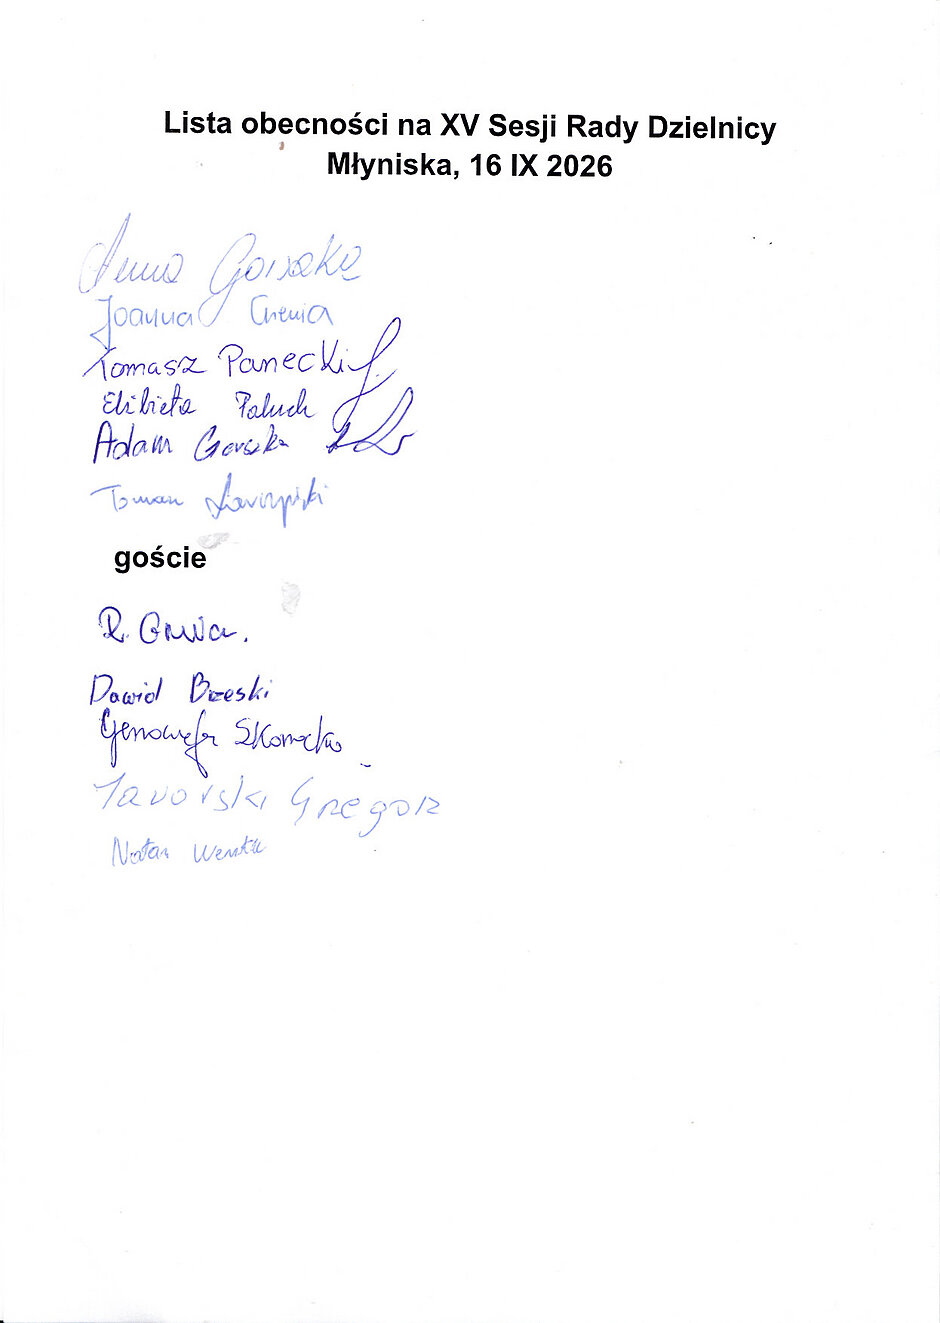 Lista obecności na XV Sesji Rady Dzielnicy
Młyniska, 16 IX 2026
Anna Gorszka
Joanna
Tomasz Panecki
Elżbieta Paluch
Adam Gorszka
Tomasz
goście
R. Gniva.
Dawid Brzeski
Genowefa Skonecka
Javorski Gregorz
Natan